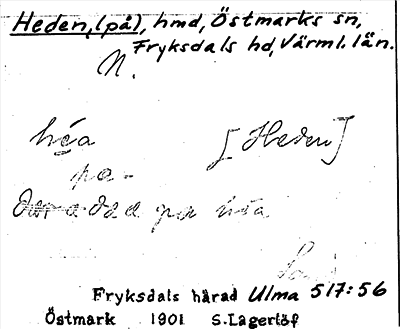 Heden, (på), hmd, Östmarks sn,
Fryksdals hd, Värml. län.
N.
héa [Heden]
pa-
pa héa
Fryksdals härad Ulma 517:56
Östmark 1901 S.Lagerlöf